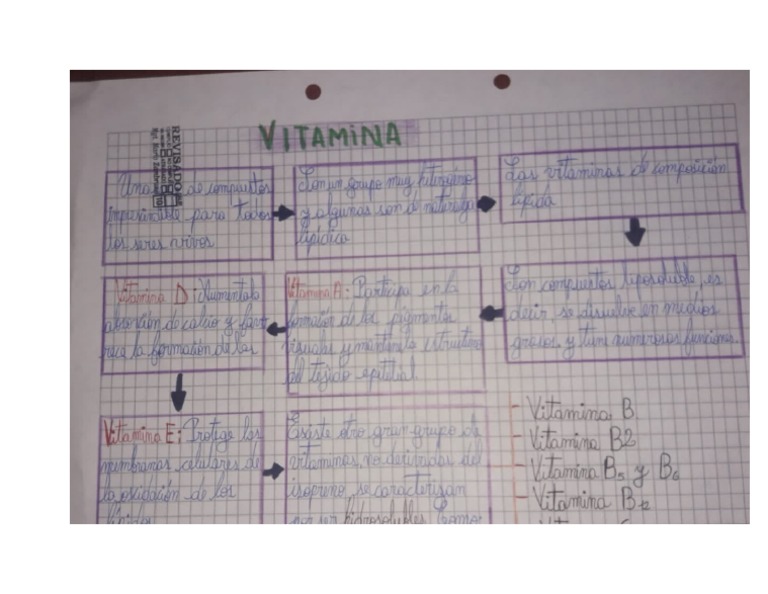 VITAMINA
REVISADO
Una de compuestos
imprescindible para todos
los seres vivos
Son un grupo muy hiterogeno
y algunas son de naturaleza
lipídica
Las vitaminas de composición
lipida
Son compuestos liposoluble, es
decir, se disuelve en medios
grasos y tiene numerosas funciones.
Vitamina A: Participa en la
formación de los pigmentos
visuales y mantiene la estructura
del tejido epitelial.
Vitamina D: Aumenta la
absorción de calcio y favo
rece la formación de los
Vitamina E: Protege las
membranas celulares de
la oxidación de los
lípidos
Existe otro gran grupo de
vitaminas, no derivadas del
isopreno, se caracterizan
por ser hidrosolubles Como
- Vitamina B
- Vitamina B2
- Vitamina B5 y B6
- Vitamina B12